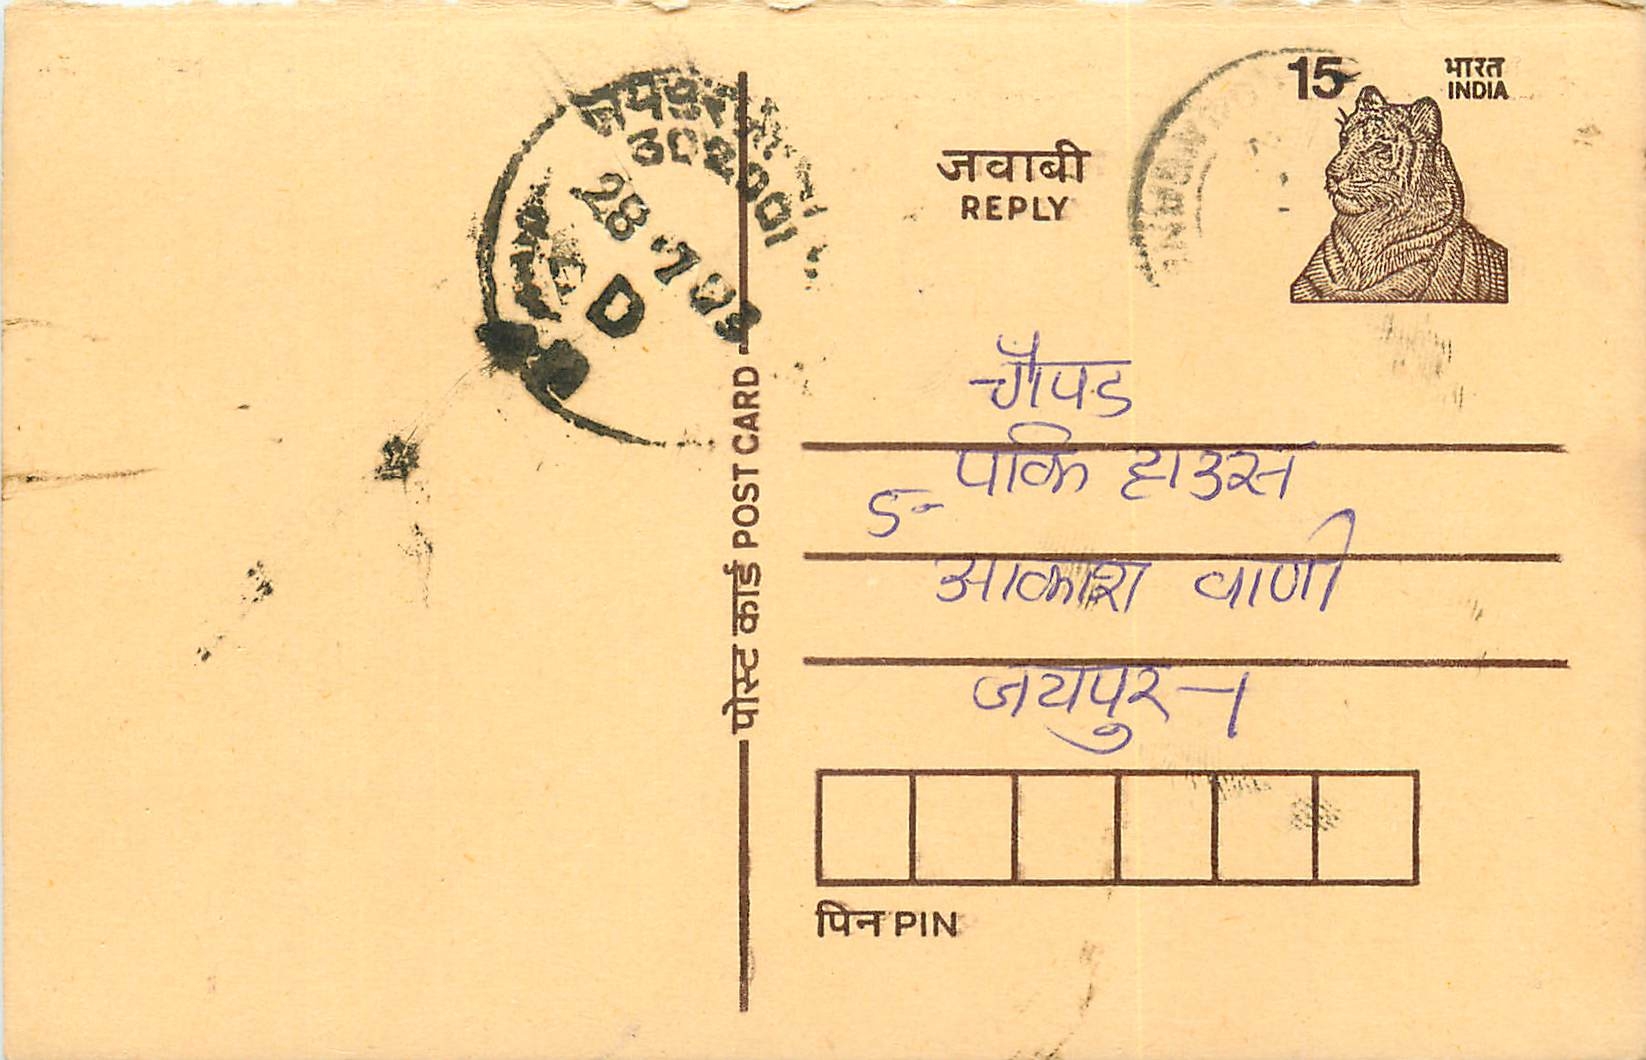 जयपुर
302001
28 7 93
D
15
भारत
INDIA
जवाबी
REPLY
पोस्ट कार्ड POST CARD
चौपड
5- पार्क हाउस
आकाश वाणी
जयपुर-1
पिन PIN